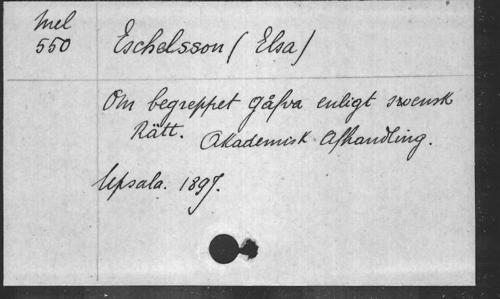 Mel
550
Eschelsson (Elsa)
Om begreppet gåfva enligt svensk
Rätt. Akademisk Afhandling.
Upsala. 1897.